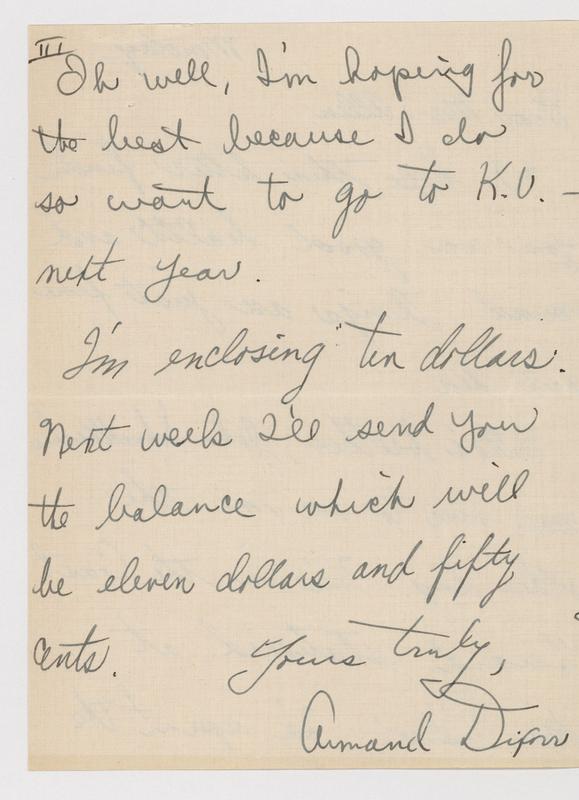 III
Oh well, I'm hoping for
the best because I do
so want to go to K.U. -
next year.
I'm enclosing ten dollars.
Next week I'll send you
the balance which will
be eleven dollars and fifty
cents.
Yours truly,
Armand Dixon